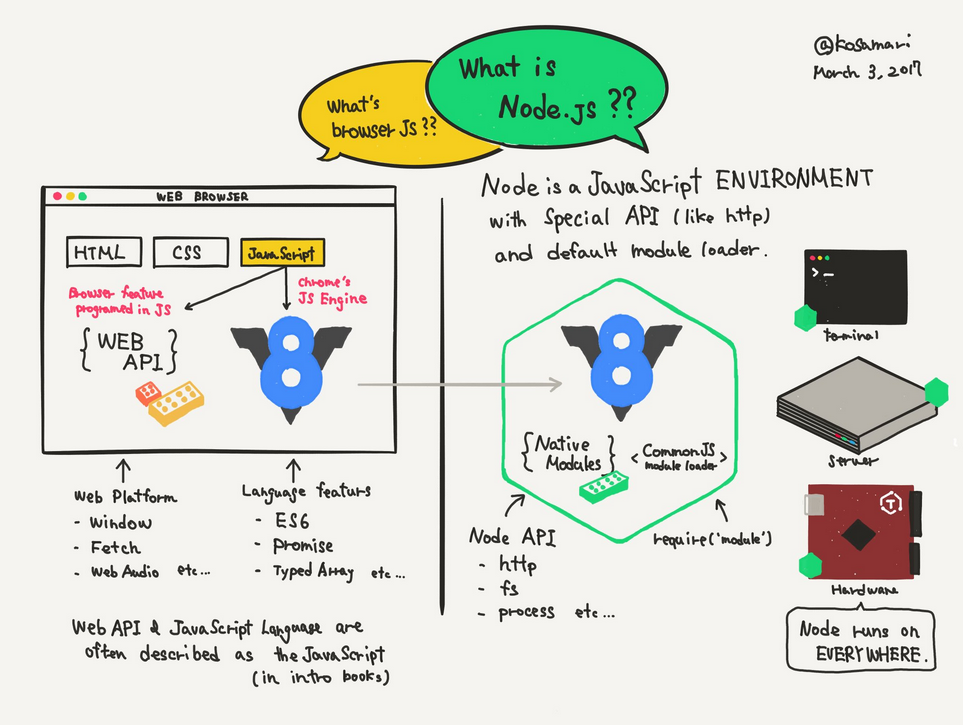 @kosamari
March 3, 2017
What's
browser JS ??
What is
Node.js ??
WEB BROWSER
HTML
CSS
JavaScript
Browser feature
programed in JS
Chrome's
JS Engine
{WEB
API}
8
Web Platform
- Window
- Fetch
- Web Audio etc...
Language featurs
- ES6
- Promise
- Typed Array etc...
Web API & JavaScript Language are
often described as the JavaScript
(in intro books)
Node is a JavaScript ENVIRONMENT
with Special API (like http)
and default module loader.
8
{Native
Modules}
<CommonJS
module loader>
Node API
- http
- fs
- process etc...
require('module')
>_
terminal
Server
T
Hardware
Node runs on
EVERYWHERE.